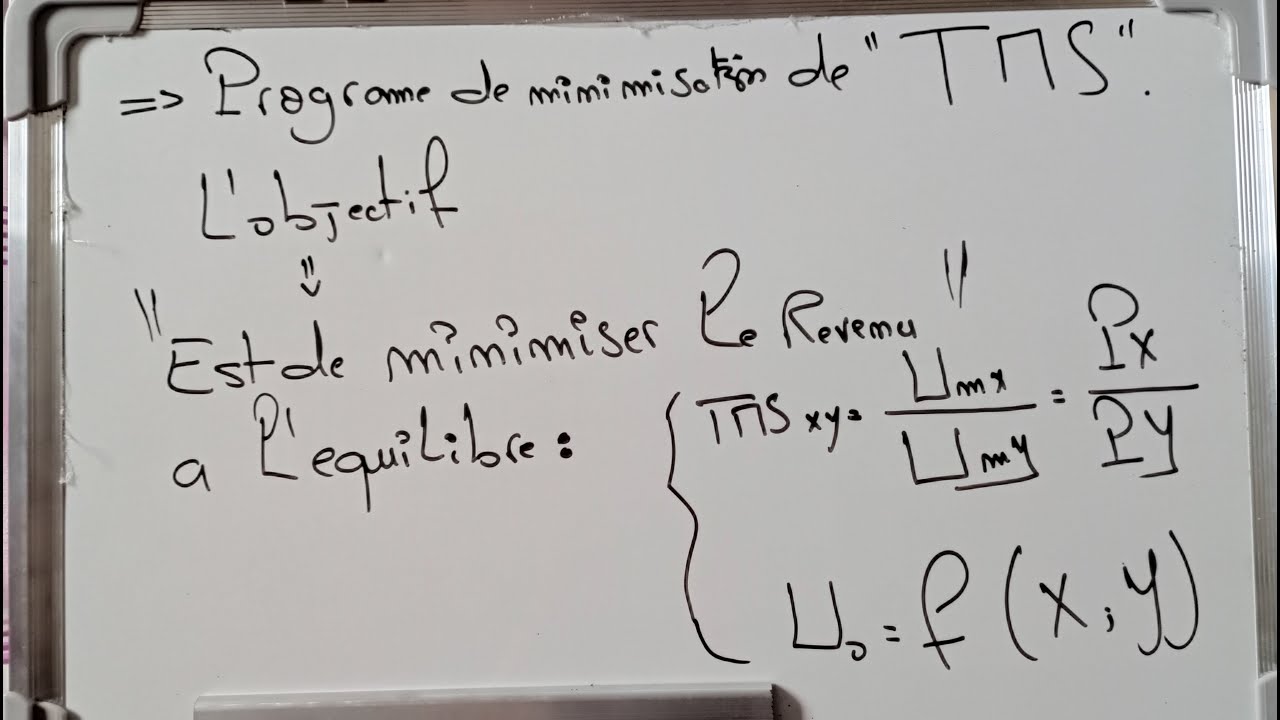 => Programe de minimisation de "TMS".
L'objectif
⇓
"Est de minimiser le Revenu"
a l'equilibre :
TMS xy = Umx / Umy = Px / Py
U₀ = f (x, y)